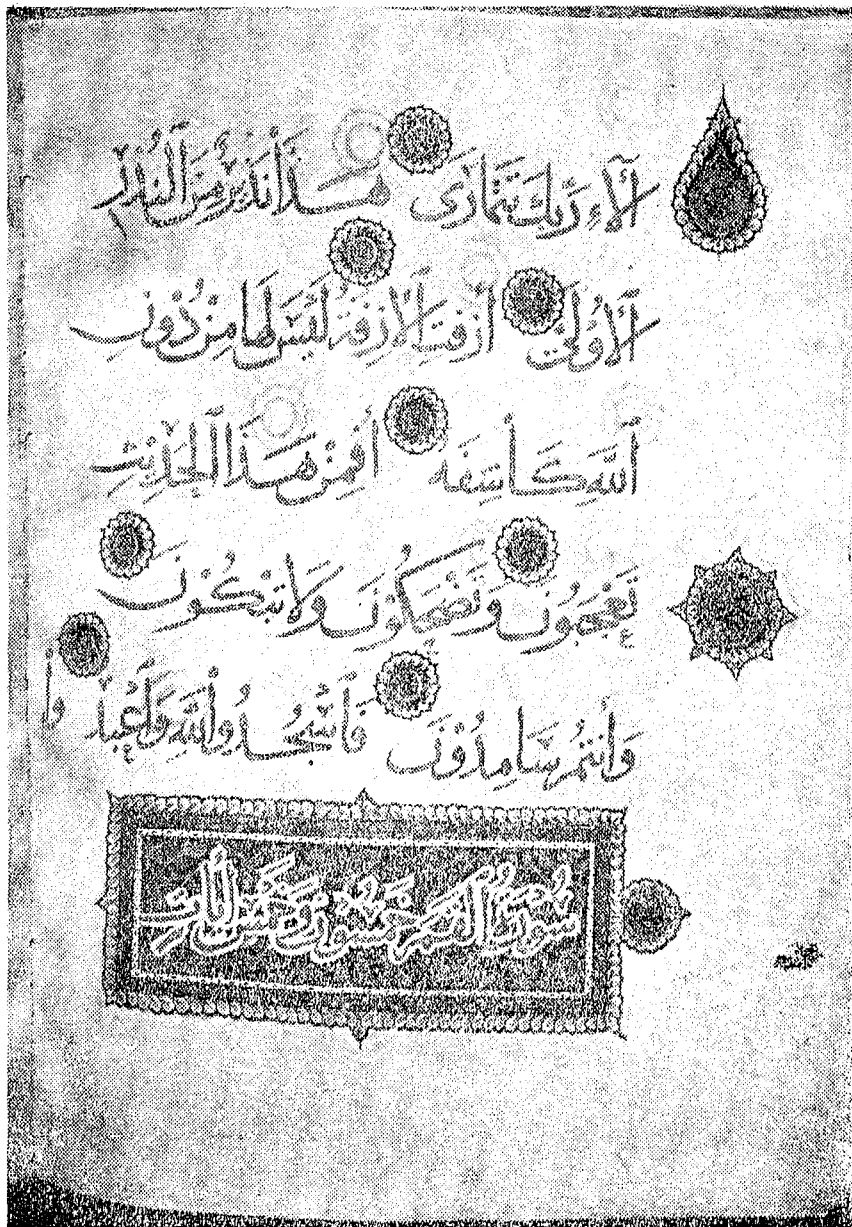 آلَاءِ رَبِّكَ تَتَمَارَىٰ هَـٰذَا نَذِيرٌ مِّنَ ٱلنُّذُرِ
ٱلْأُولَىٰ أَزِفَتِ ٱلْآزِفَةُ لَيْسَ لَهَا مِن دُونِ
ٱللَّهِ كَاشِفَةٌ أَفَمِنْ هَـٰذَا ٱلْحَدِيثِ
تَعْجَبُونَ وَتَضْحَكُونَ وَلَا تَبْكُونَ
وَأَنتُمْ سَامِدُونَ فَٱسْجُدُوا۟ لِلَّهِ وَٱعْبُدُوا
سُورَةُ ٱلْقَمَرِ خَمْسُونَ وَخَمْسُ آيَاتٍ